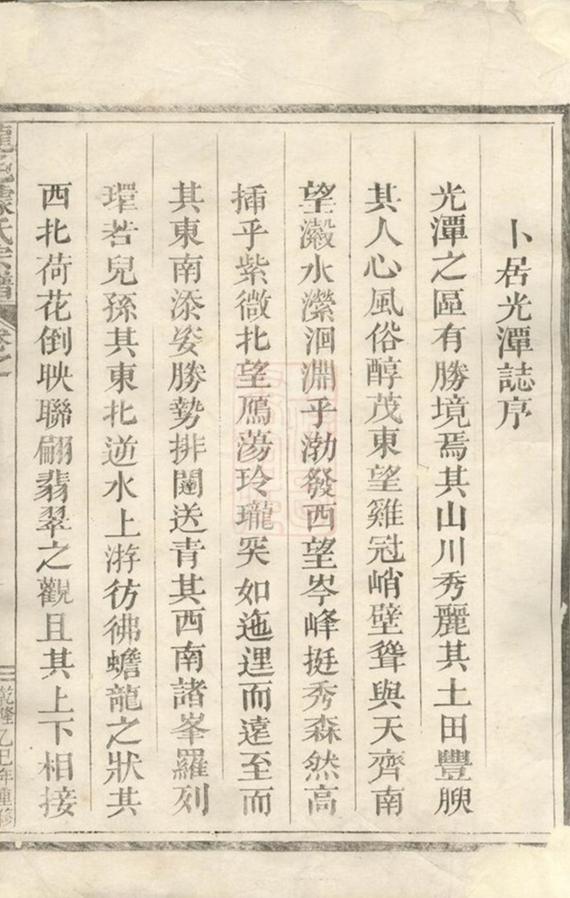 卜居光潭誌序
光潭之區有勝境焉其山川秀麗其土田豐腴
其人心風俗醇茂東望雞冠峭壁聳與天齊南
望瀫水瀠洄淵乎渤發西望岑峰挺秀森然高
插乎紫微北望鴈蕩玲瓏突如迤邐而遠至而
其東南添姿勝勢排闥送青其西南諸峯羅列
環若兒孫其東北逆水上游彷彿蟾龍之狀其
西北荷花倒映聯翩翡翠之觀且其上下相接
氏宗譜
乾隆乙巳年重修